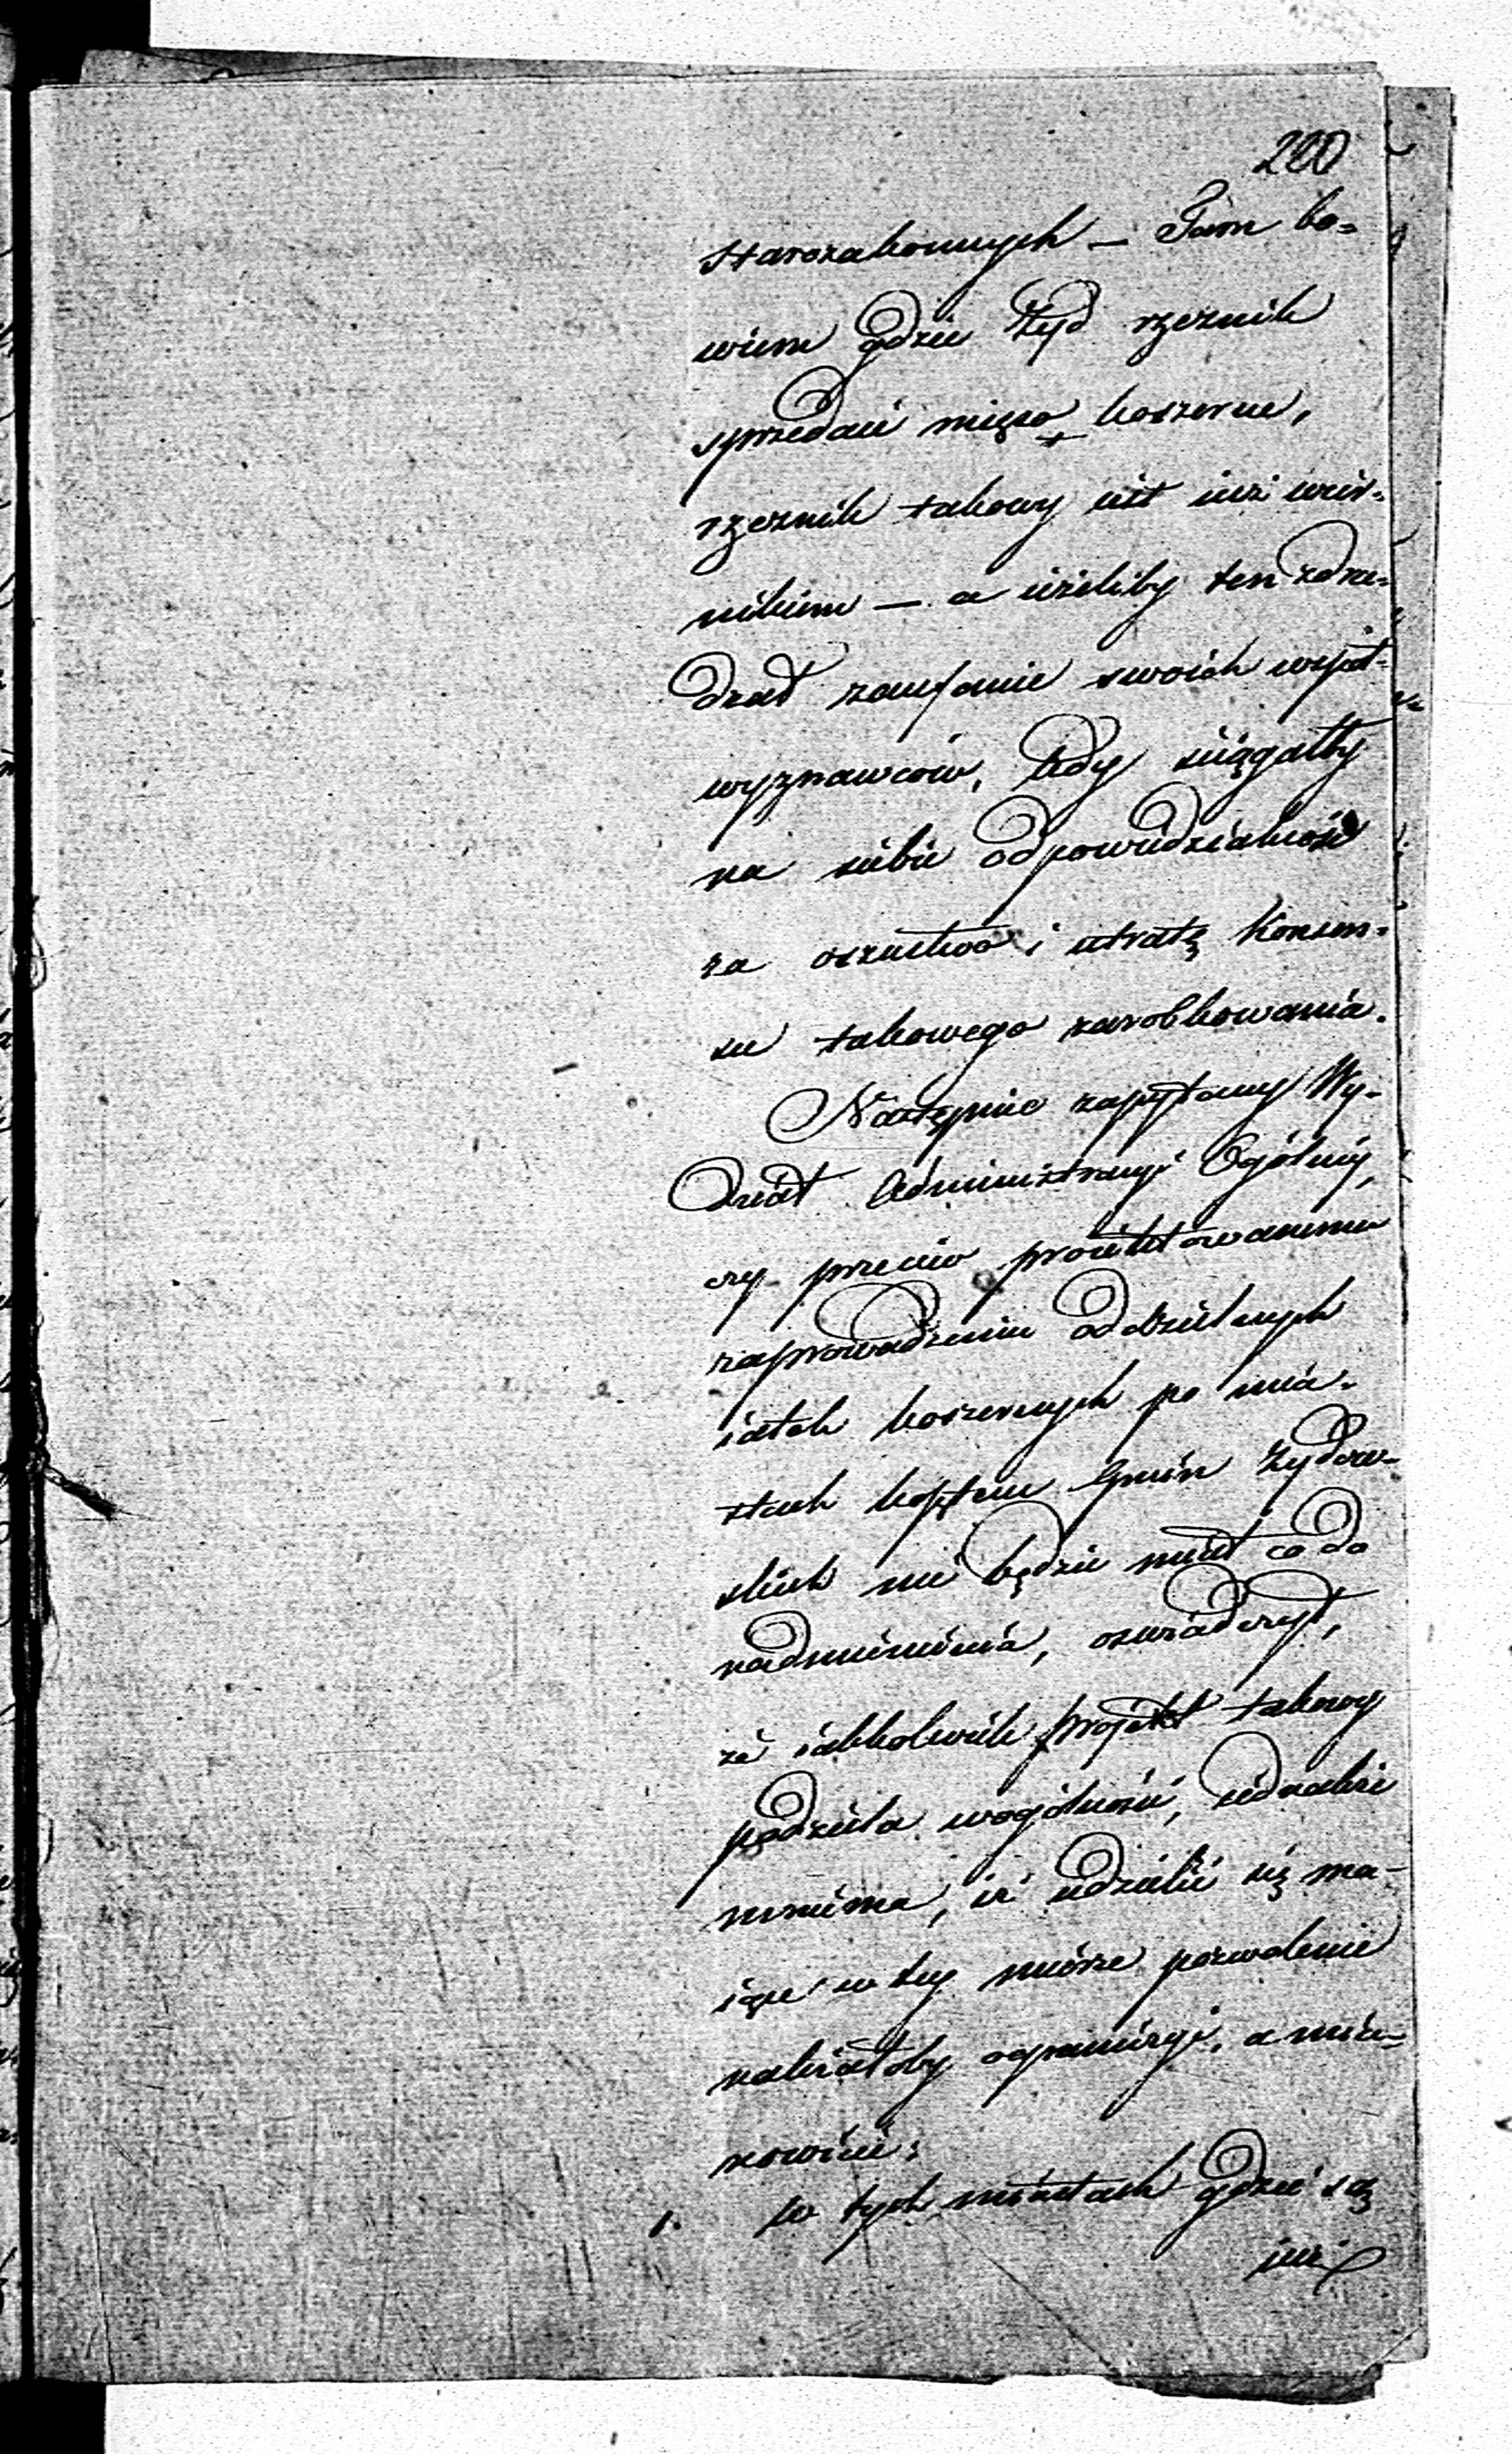 200
starozakonnych — Tam bo=
wiem gdzie Żyd rzeznik
sprzedaie mięso koszerne,
rzeznik takowy iest iuż wier-
nikiem — a ieżeliby ten zdra-
dzał zaufanie swoich współ-
wyznawców, tedy ściągałby
na siebie odpowiedzialność
za oszustwo i utratę Konsen-
su takowego zarobkowania.
Następnie zapytany Wy-
dział Administracyi Ogólnéj,
czy przeciw proiektowanemu
zaprowadzeniu oddzielnych
iatek koszernych po mia-
stach kosztem Gmin Żydow-
skich nie będzie miał co do
nadmienienia, oswiadczył,
że iakkolwiek projekt takowy
podziela wogólności, iednakże
mniema, iż udzielić się ma-
iące w téy mierze pozwolenie
należałoby ograniczyć, a mia-
nowicie:
1. w tych miastach gdzie są
iuż